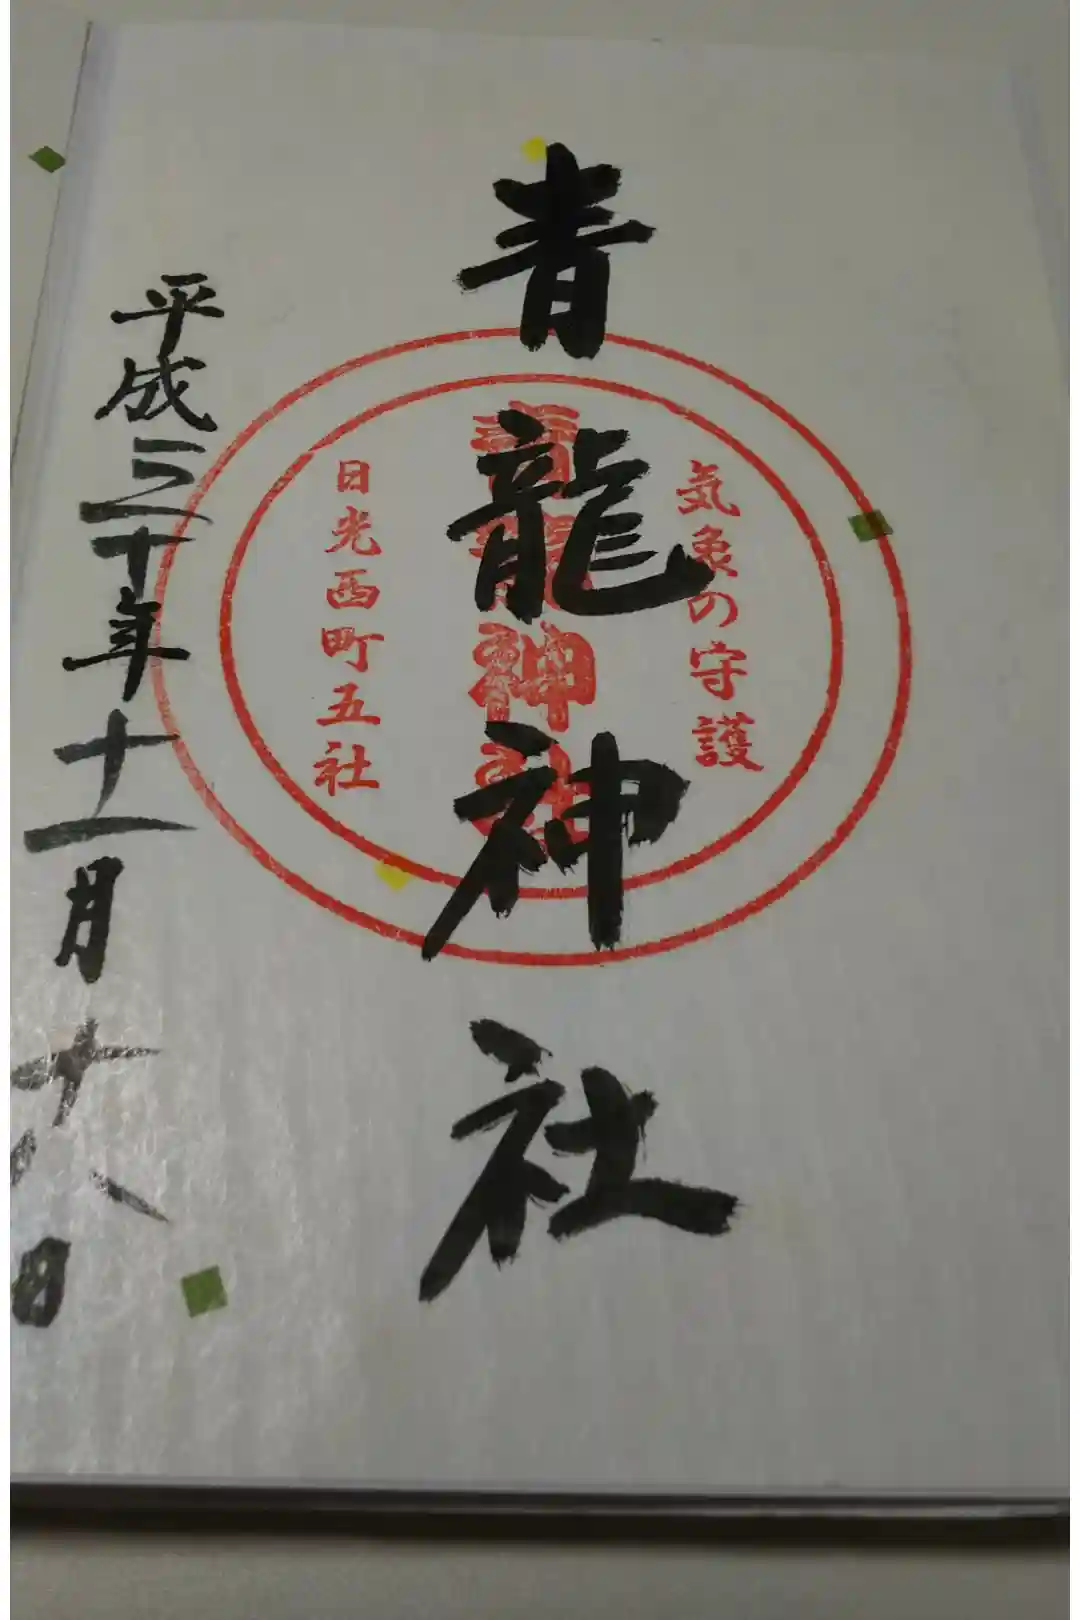 気象の守護
青龍神社
青龍神社
日光西町五社
平成三十年十一月十八日